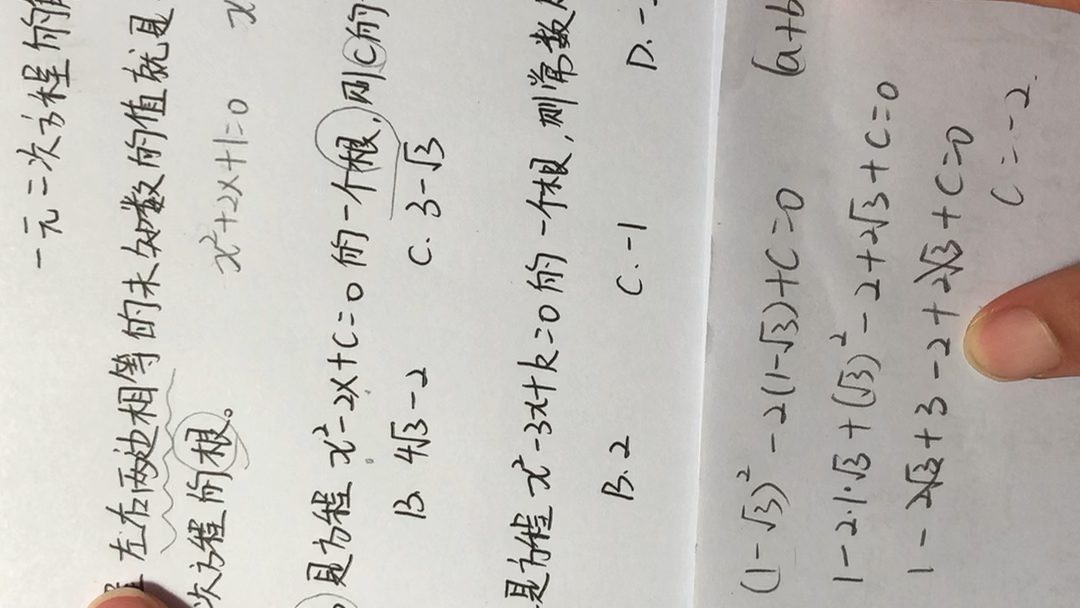 一元二次方程的
左右两边相等的未知数的值就是
次方程的根。 x²+2x+1=0 x
是方程 x²-2x+C=0 的一个根,则C的
B. 4√3-2 C. 3-√3
是方程 x²-3x+k=0 的一个根,则常数
B. 2 C. -1 D. -
(1-√3)²-2(1-√3)+C=0 (a+b
1-2·1·√3+(√3)²-2+2√3+C=0
1-2√3+3-2+2√3+C=0
C=-2.